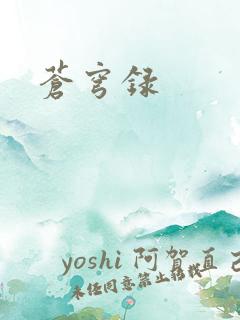 蒼穹録
yoshi 阿賀直己
未经同意禁止转载